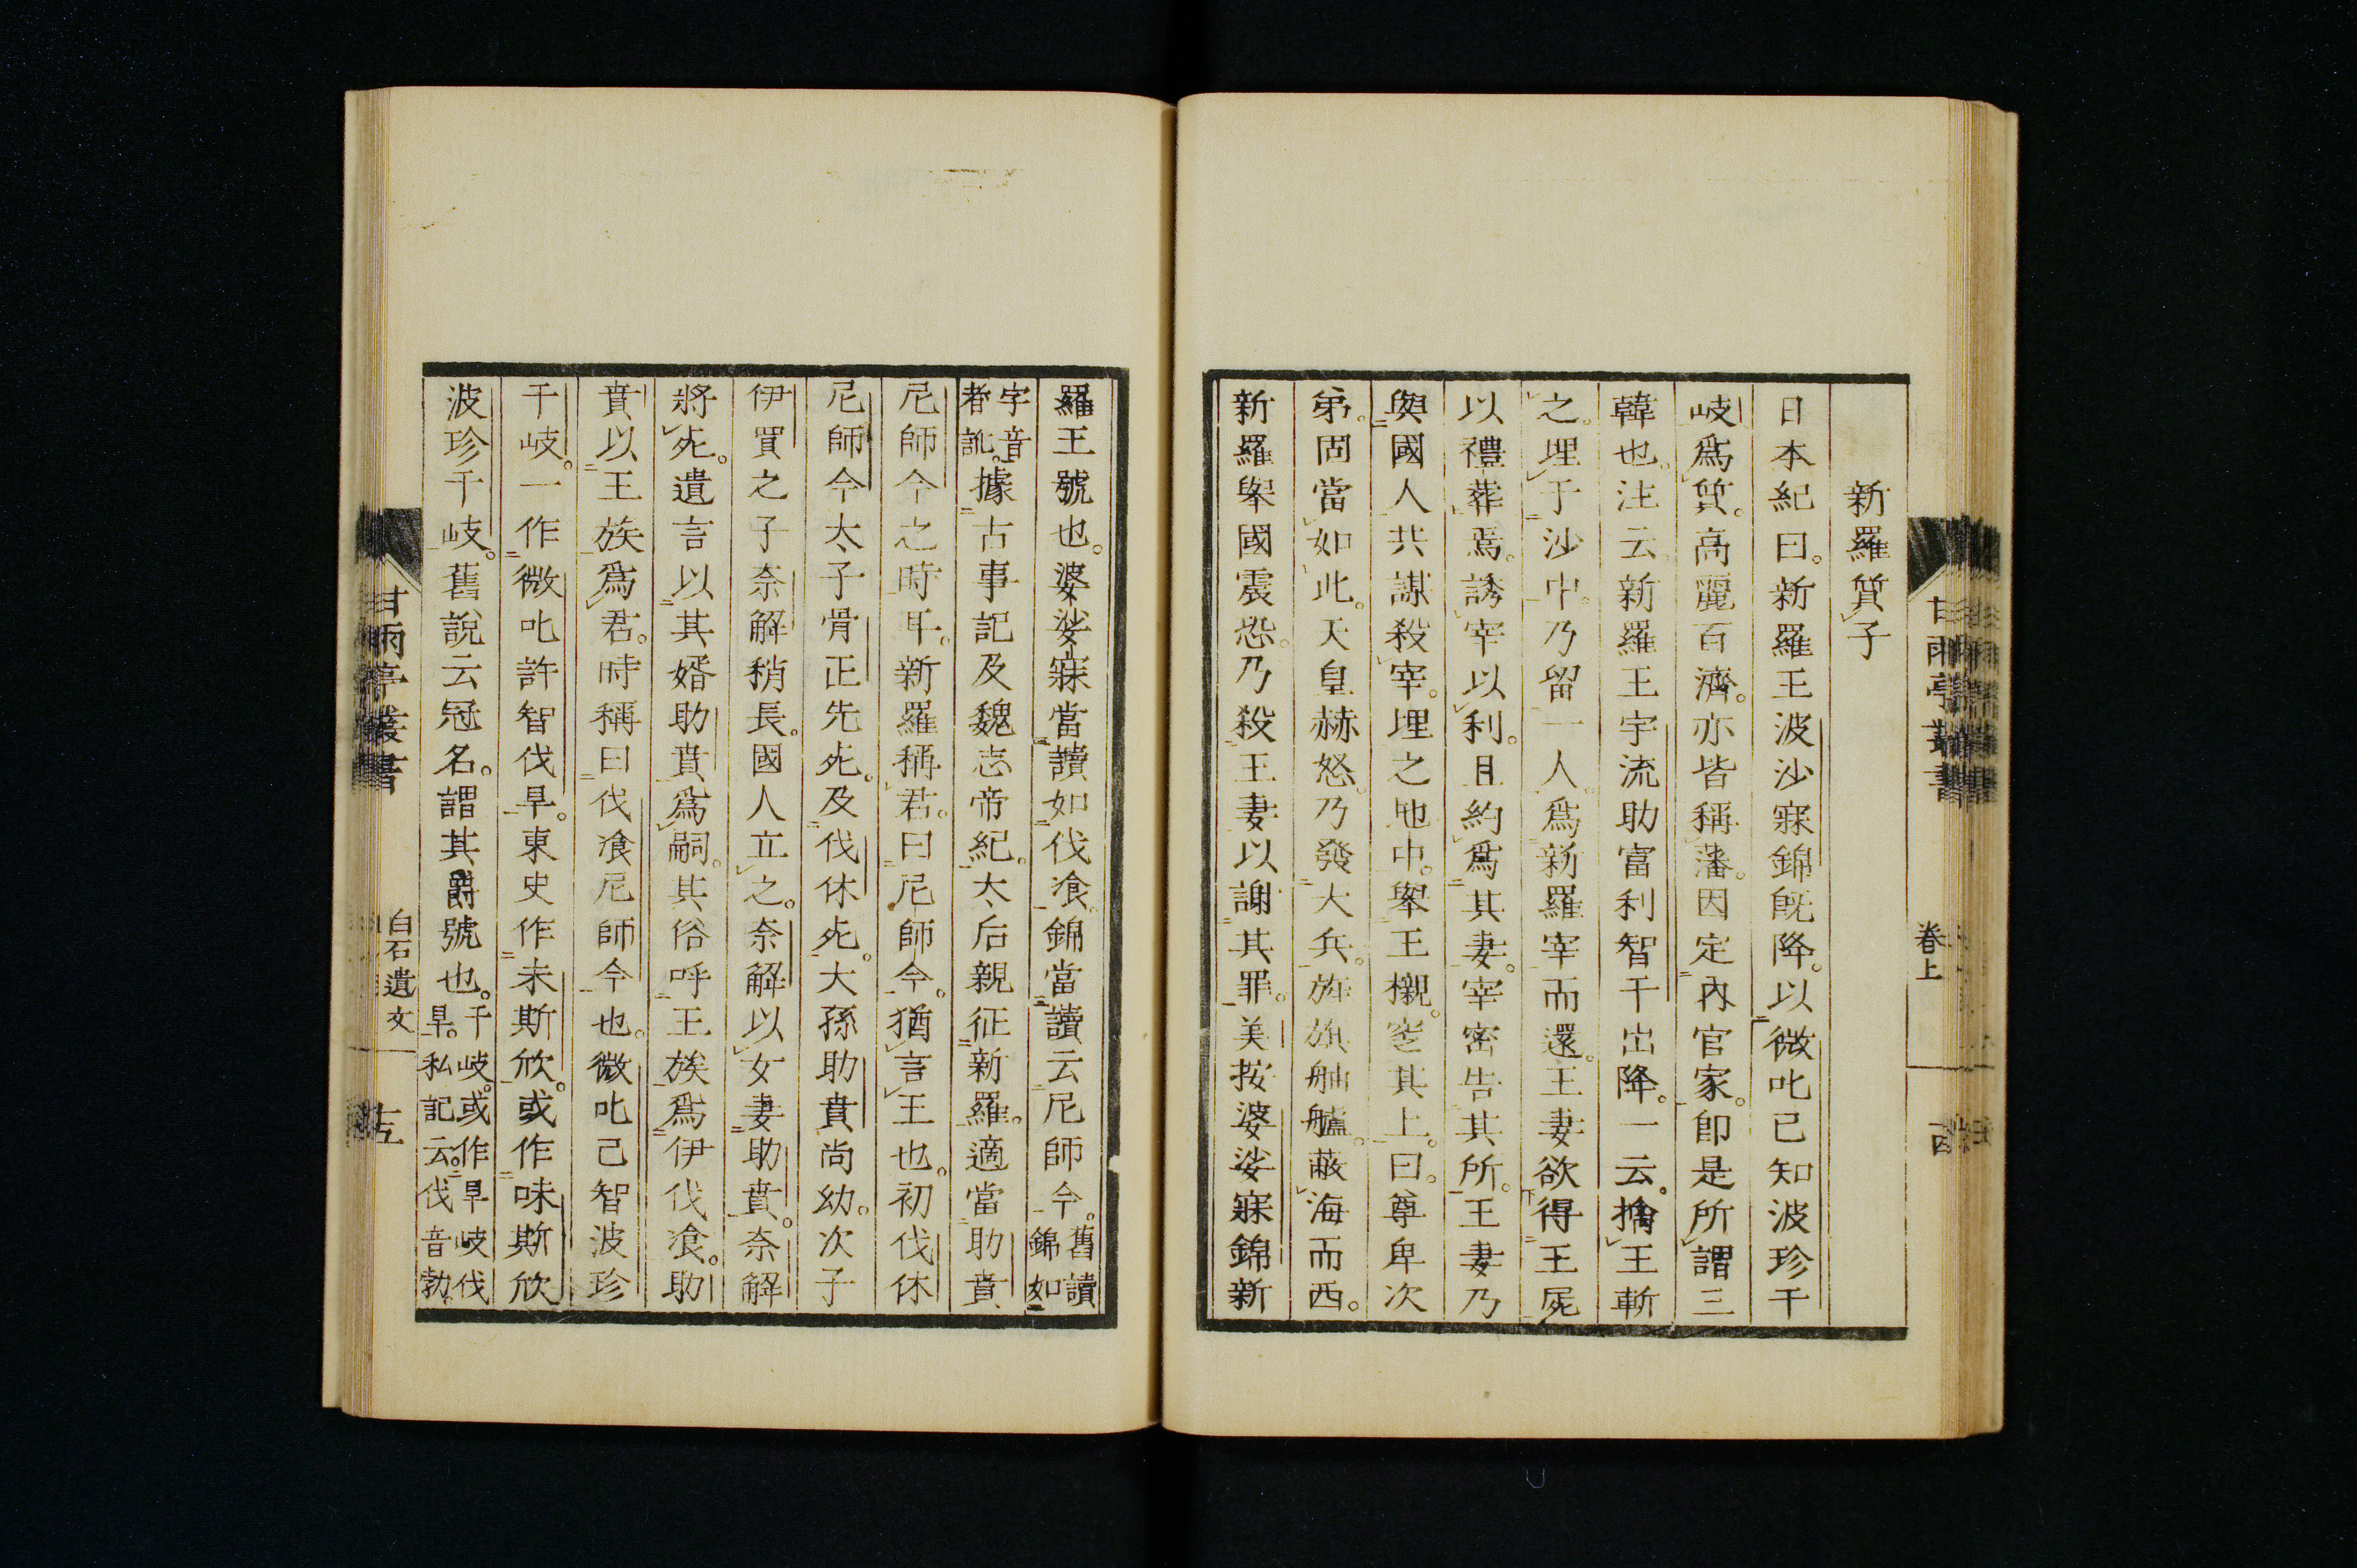 甘雨亭叢書
卷上
新羅質子
日本紀曰。新羅王波沙寐錦既降。以微叱己知波珍干
岐爲質。高麗百濟。亦皆稱藩。因定內官家。卽是所謂三
韓也。注云新羅王宇流助富利智干出降。一云。擒王斬
之。埋于沙中。乃留一人。爲新羅宰而還。王妻欲得王屍
以禮葬焉。誘宰以利。且約爲其妻。宰密告其所。王妻乃
與國人共謀殺宰。埋之地中。舉王櫬。窆其上。曰。尊卑次
弟。固當如此。天皇赫怒。乃發大兵。旌旗舳艫。蔽海而西。
新羅舉國震恐。乃殺王妻以謝其罪。美按婆娑寐錦新
羅王號也。婆娑寐當讀如伐飡。錦當讀云尼師今。舊讀錦如
字音者訛。據古事記及魏志帝紀。太后親征新羅。適當助賁
尼師今之時耳。新羅稱君。曰尼師今。猶言王也。初伐休
尼師今太子骨正先死。及伐休死。大孫助賁尚幼。次子
伊買之子奈解稍長。國人立之。奈解以女妻助賁。奈解
將死。遺言以其婿助賁爲嗣。其俗呼王族爲伊伐飡。助
賁以王族爲君。時稱曰伐飡尼師今也。微叱己智波珍
干岐。一作微叱許智伐旱。東史作未斯欣。或作味斯欣
波珍干岐。舊說云冠名。謂其爵號也。干岐。或作旱岐伐旱。私記云。伐音勃。
甘雨亭叢書
白石遺文
十五